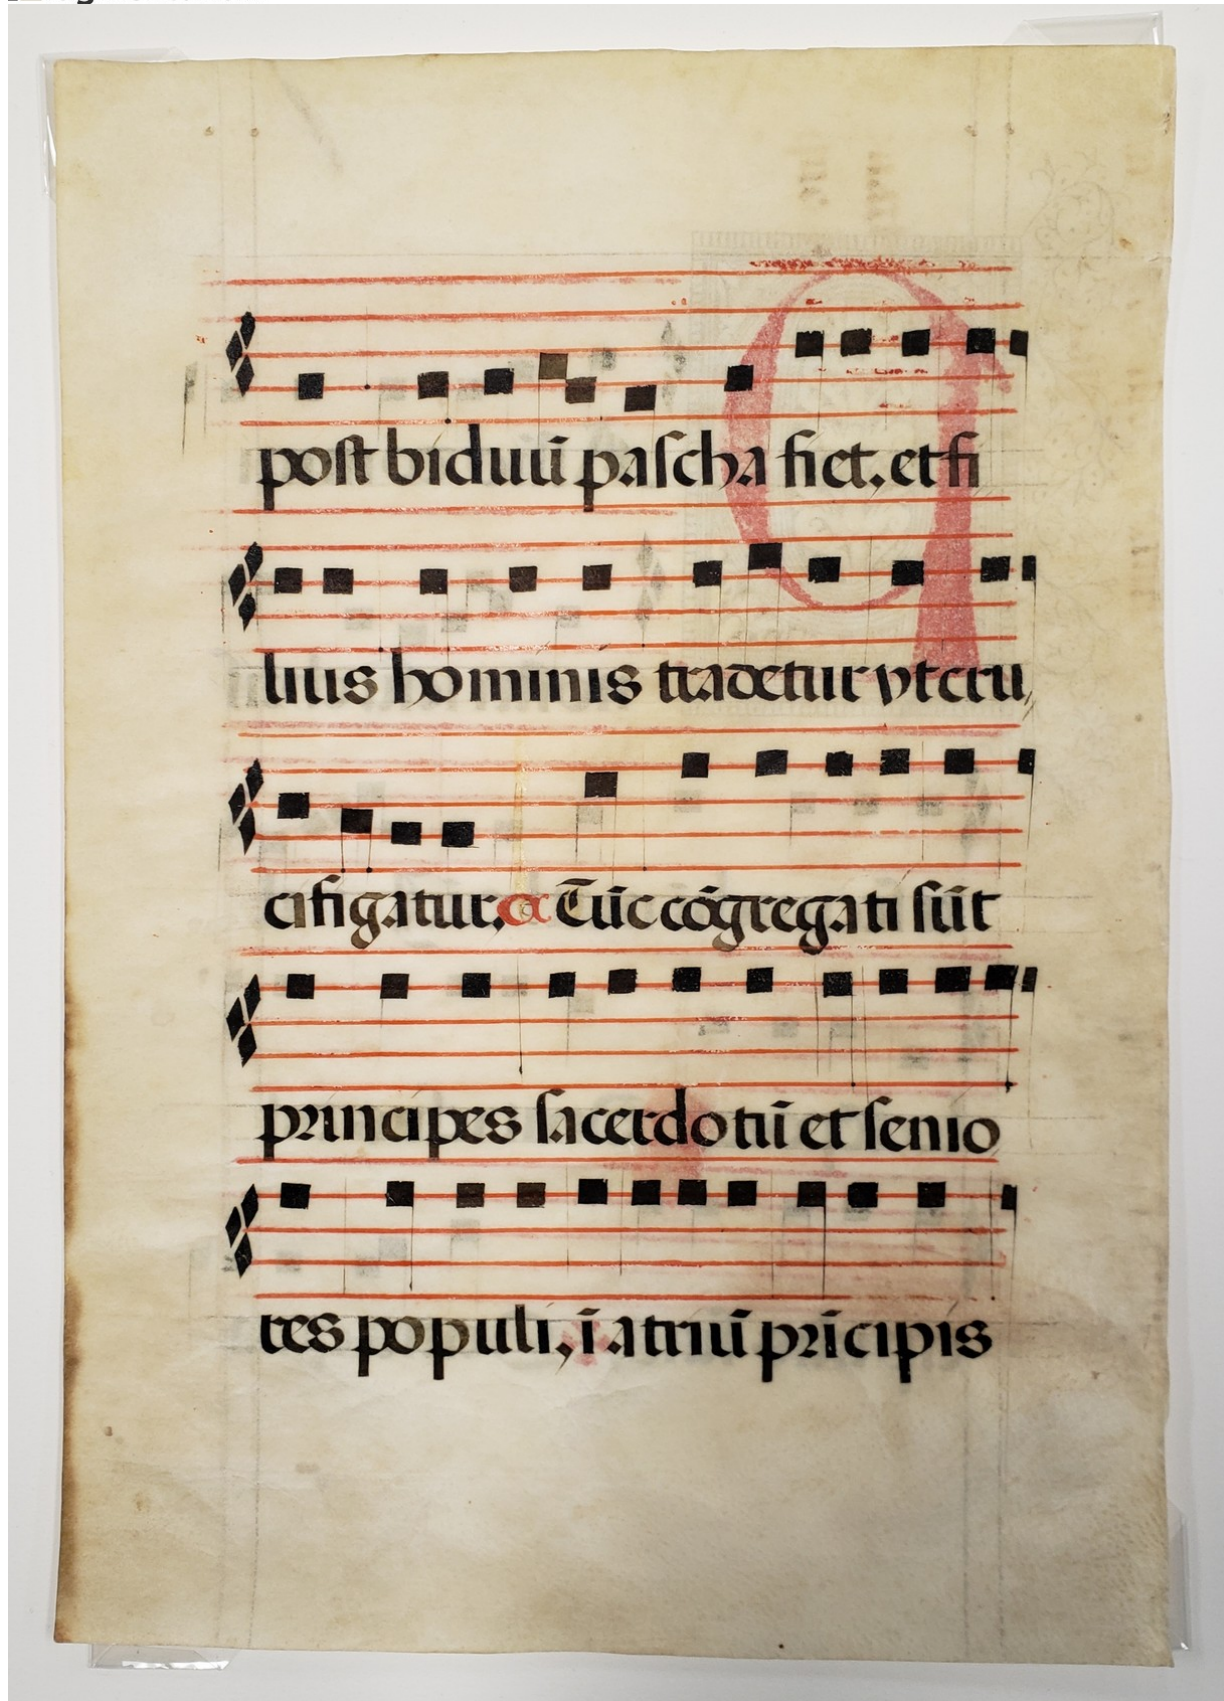 post biduū pascha fiet, et fi
lius hominis tradetur vt cru,
cifigatur. C Tūc cōgregati sūt
principes sacerdotū et senio
res populi, ī atriū prīcipis